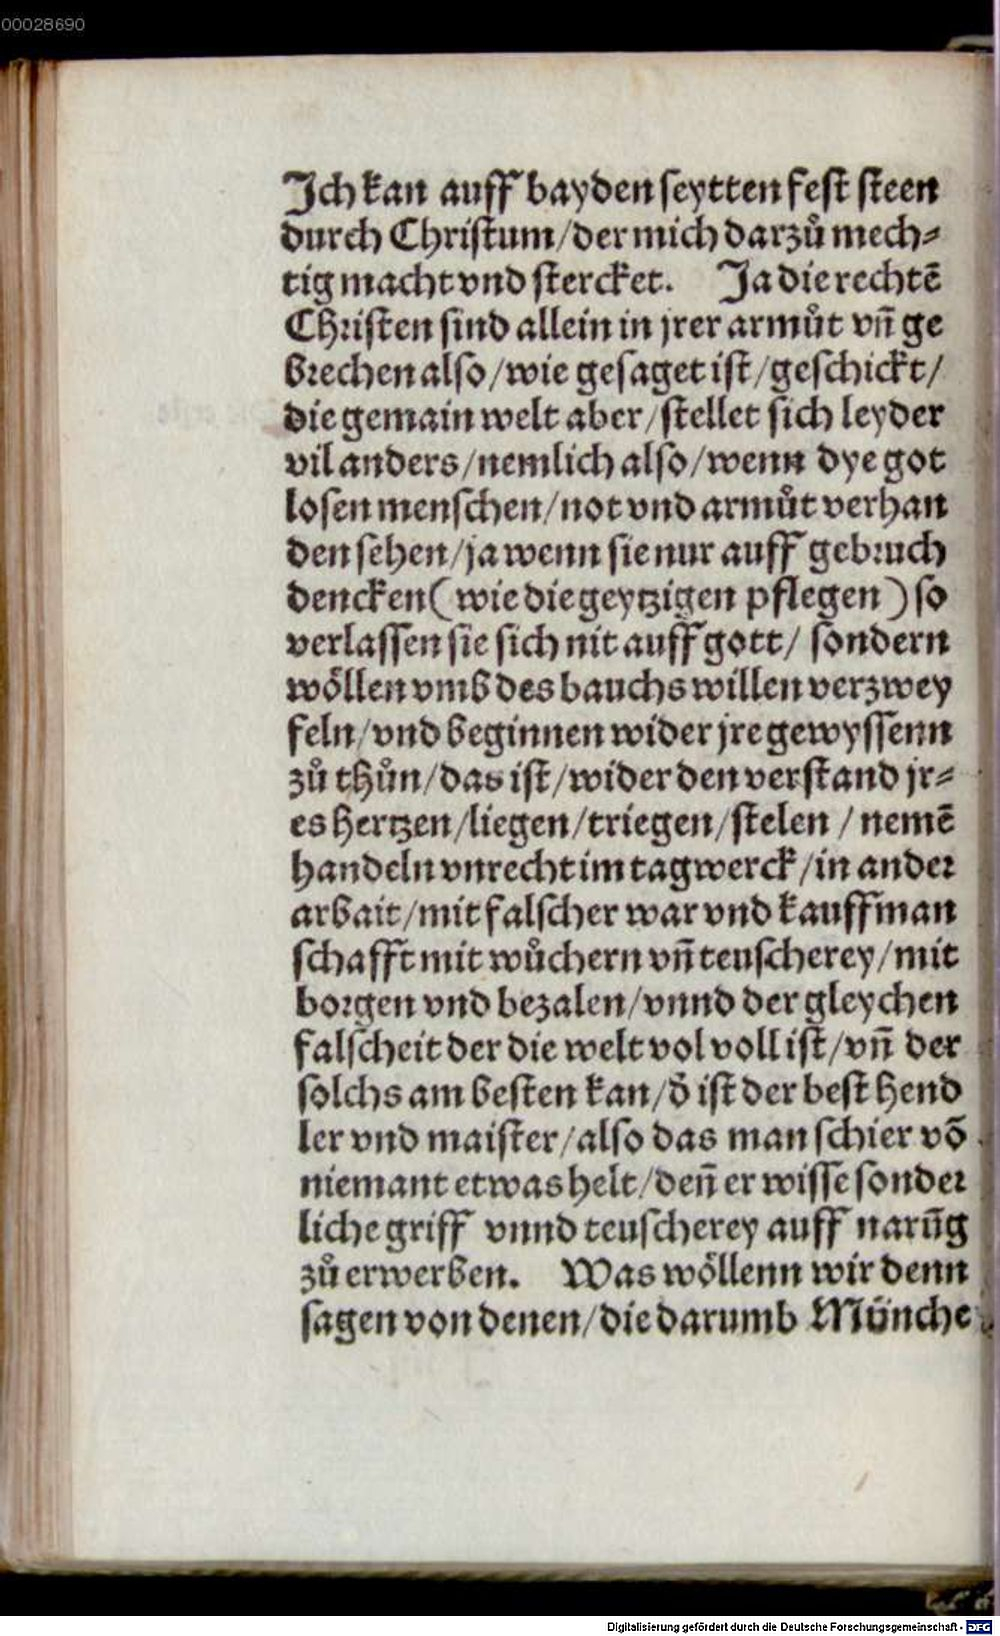 00028690
Ich kan auff bayden seytten fest steen
durch Christum/der mich darzuͦ mech⸗
tig macht vnd stercket. Ja die rechtē
Christen sind allein in jrer armuͦt vn̄ ge
brechen also/wie gesaget ist/geschickt/
die gemain welt aber/stellet sich leyder
vil anders/nemlich also/wenn dye got
losen menschen/not vnd armuͦt verhan
den sehen/ja wenn sie nur auff gebruch
dencken(wie die geytzigen pflegen)so
verlassen sie sich nit auff gott/ sondern
woͤllen vmb des bauchs willen verzwey
feln/vnd beginnen wider jre gewyssenn
zuͦ thuͦn/das ist/wider den verstand jr⸗
es hertzen/liegen/triegen/stelen / nemē
handeln vnrecht im tagwerck/in ander
arbait/mit falscher war vnd kauffman
schafft mit wuͦchern vn̄ teuscherey/mit
borgen vnd bezalen/vnnd der gleychen
falscheit der die welt vol voll ist/vn̄ der
solchs am besten kan/d̄ ist der best hend
ler vnd maister/also das man schier vō
niemant etwas helt/den̄ er wisse sonder
liche griff vnnd teuscherey auff narūg
zuͦ erwerben. Was woͤllenn wir denn
sagen von denen/die darumb Münche
Digitalisierung gefördert durch die Deutsche Forschungsgemeinschaft - DFG